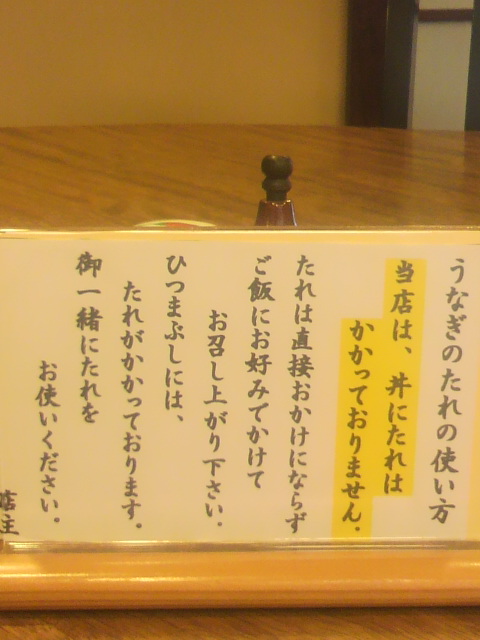 うなぎのたれの使い方
当店は、丼にたれは
かかっておりません。
たれは直接おかけにならず
ご飯にお好みでかけて
お召し上がり下さい。
ひつまぶしには、
たれがかかっております。
御一緒にたれを
お使いください。
店主